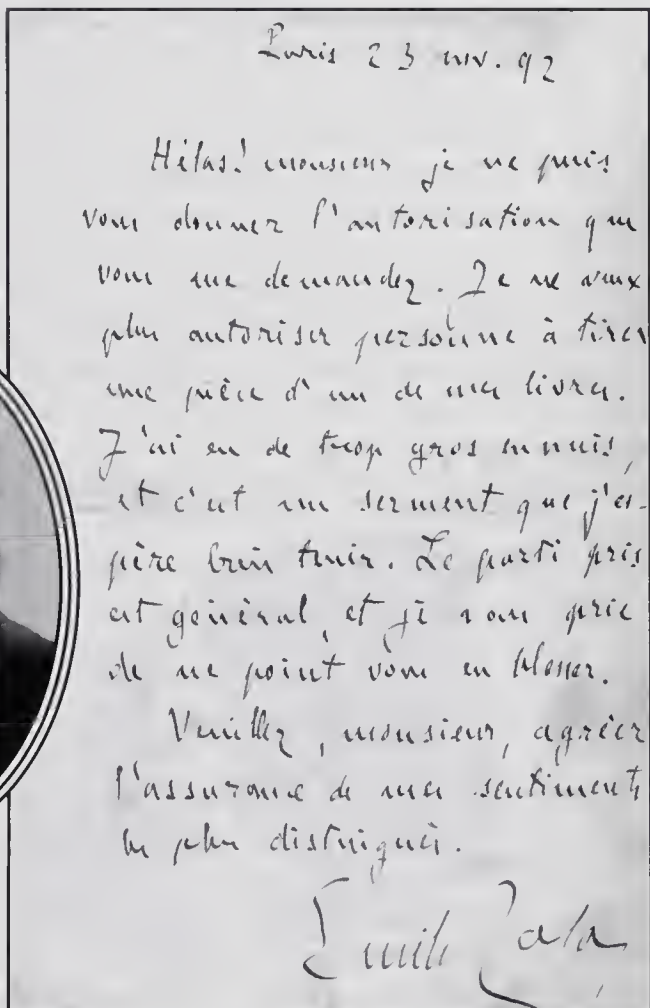 Paris 23 nov. 92
Hélas! monsieur je ne puis
vous donner l'autorisation que
vous me demandez. Je ne veux
plus autoriser personne à tirer
une pièce d'un de mes livres.
J'ai eu de trop gros ennuis,
et c'est un serment que j'es-
père bien tenir. Le parti pris
est général, et je vous prie
de ne point vous en blesser.
Veuillez, monsieur, agréer
l'assurance de mes sentiments
les plus distingués.
Emile Zola